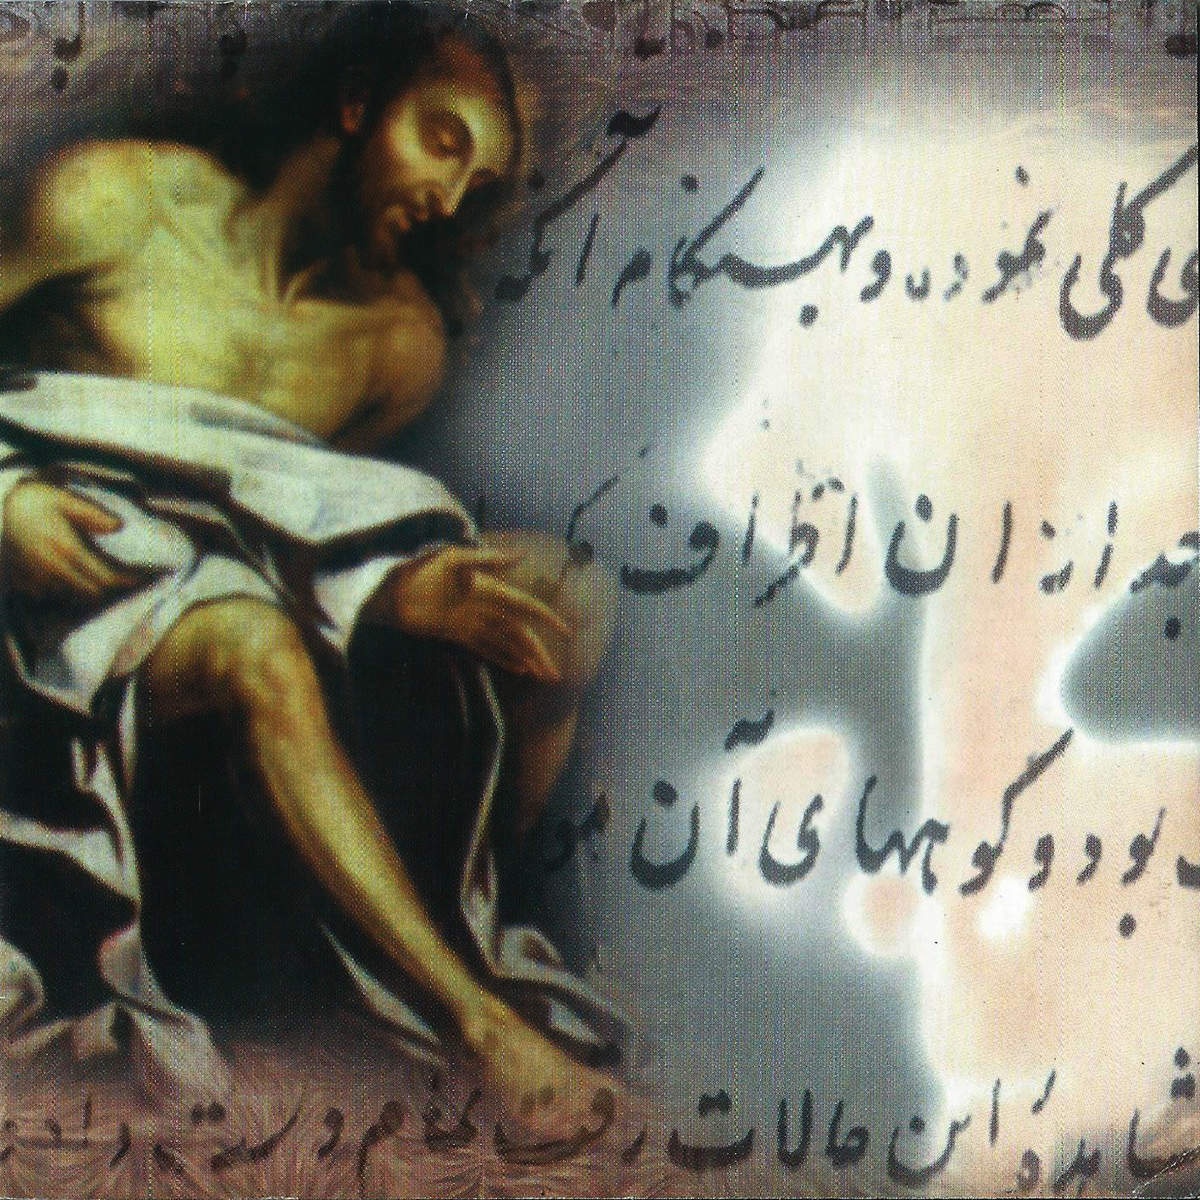 ی کلی نموده و بهنگام آنکه
بعد از ان اطراف
بود و کوههای آن مو
شاهدهٔ این حالات رقت تمام و دست داد